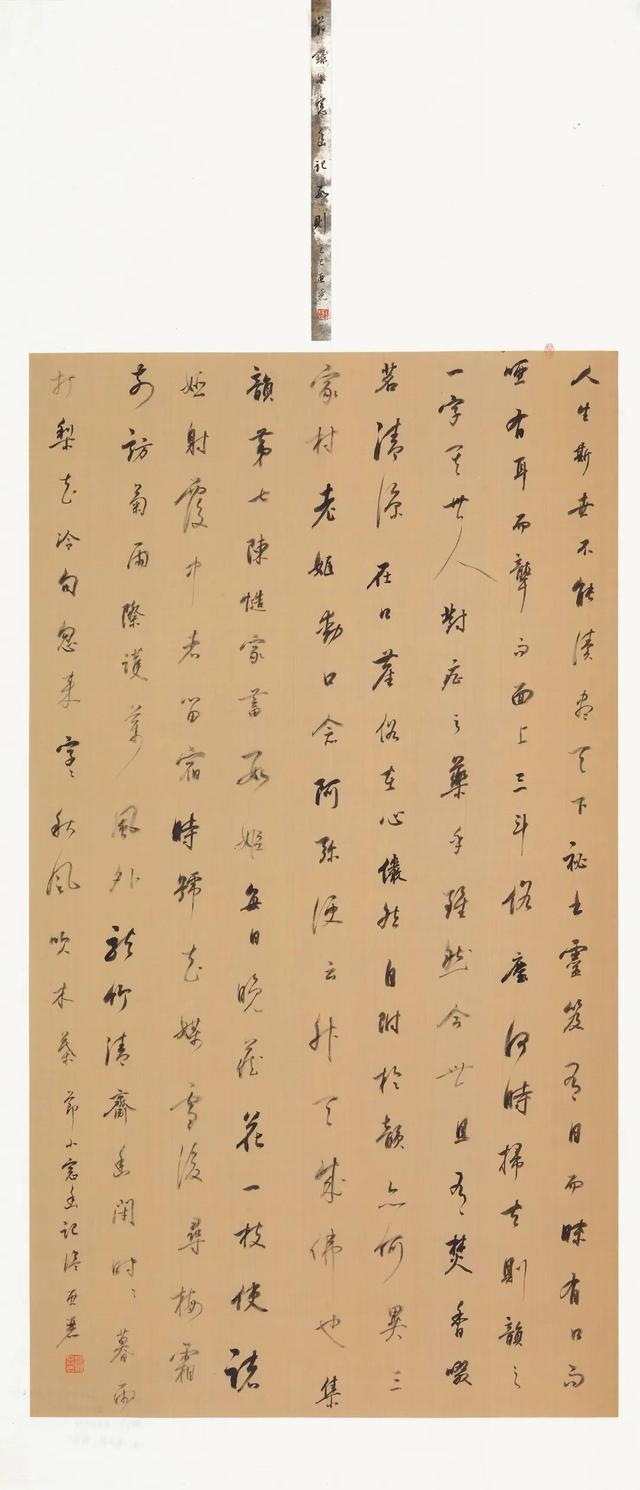 節錄小窗幽記數則
人生斯世不能讀盡天下祕書靈笈有目而昧有口而
啞有耳而聾而面上三斗俗塵何時掃去則韻之
一字其世人對症之藥乎雖然今世且有焚香啜
茗清涼在口塵俗在心儼然自附於韻亦何異三
家村老嫗動口念阿彌便云升天成佛也集
韻第七陳慥家蓄數姬每日晚藏花一枝使諸
姬射覆中者留宿時號花媒雪後尋梅霜
前訪菊雨際護蘭風外聽竹清齋幽閉時〻暮雨
打梨花冷句忽來字〻秋風吹木葉節小窗幽記